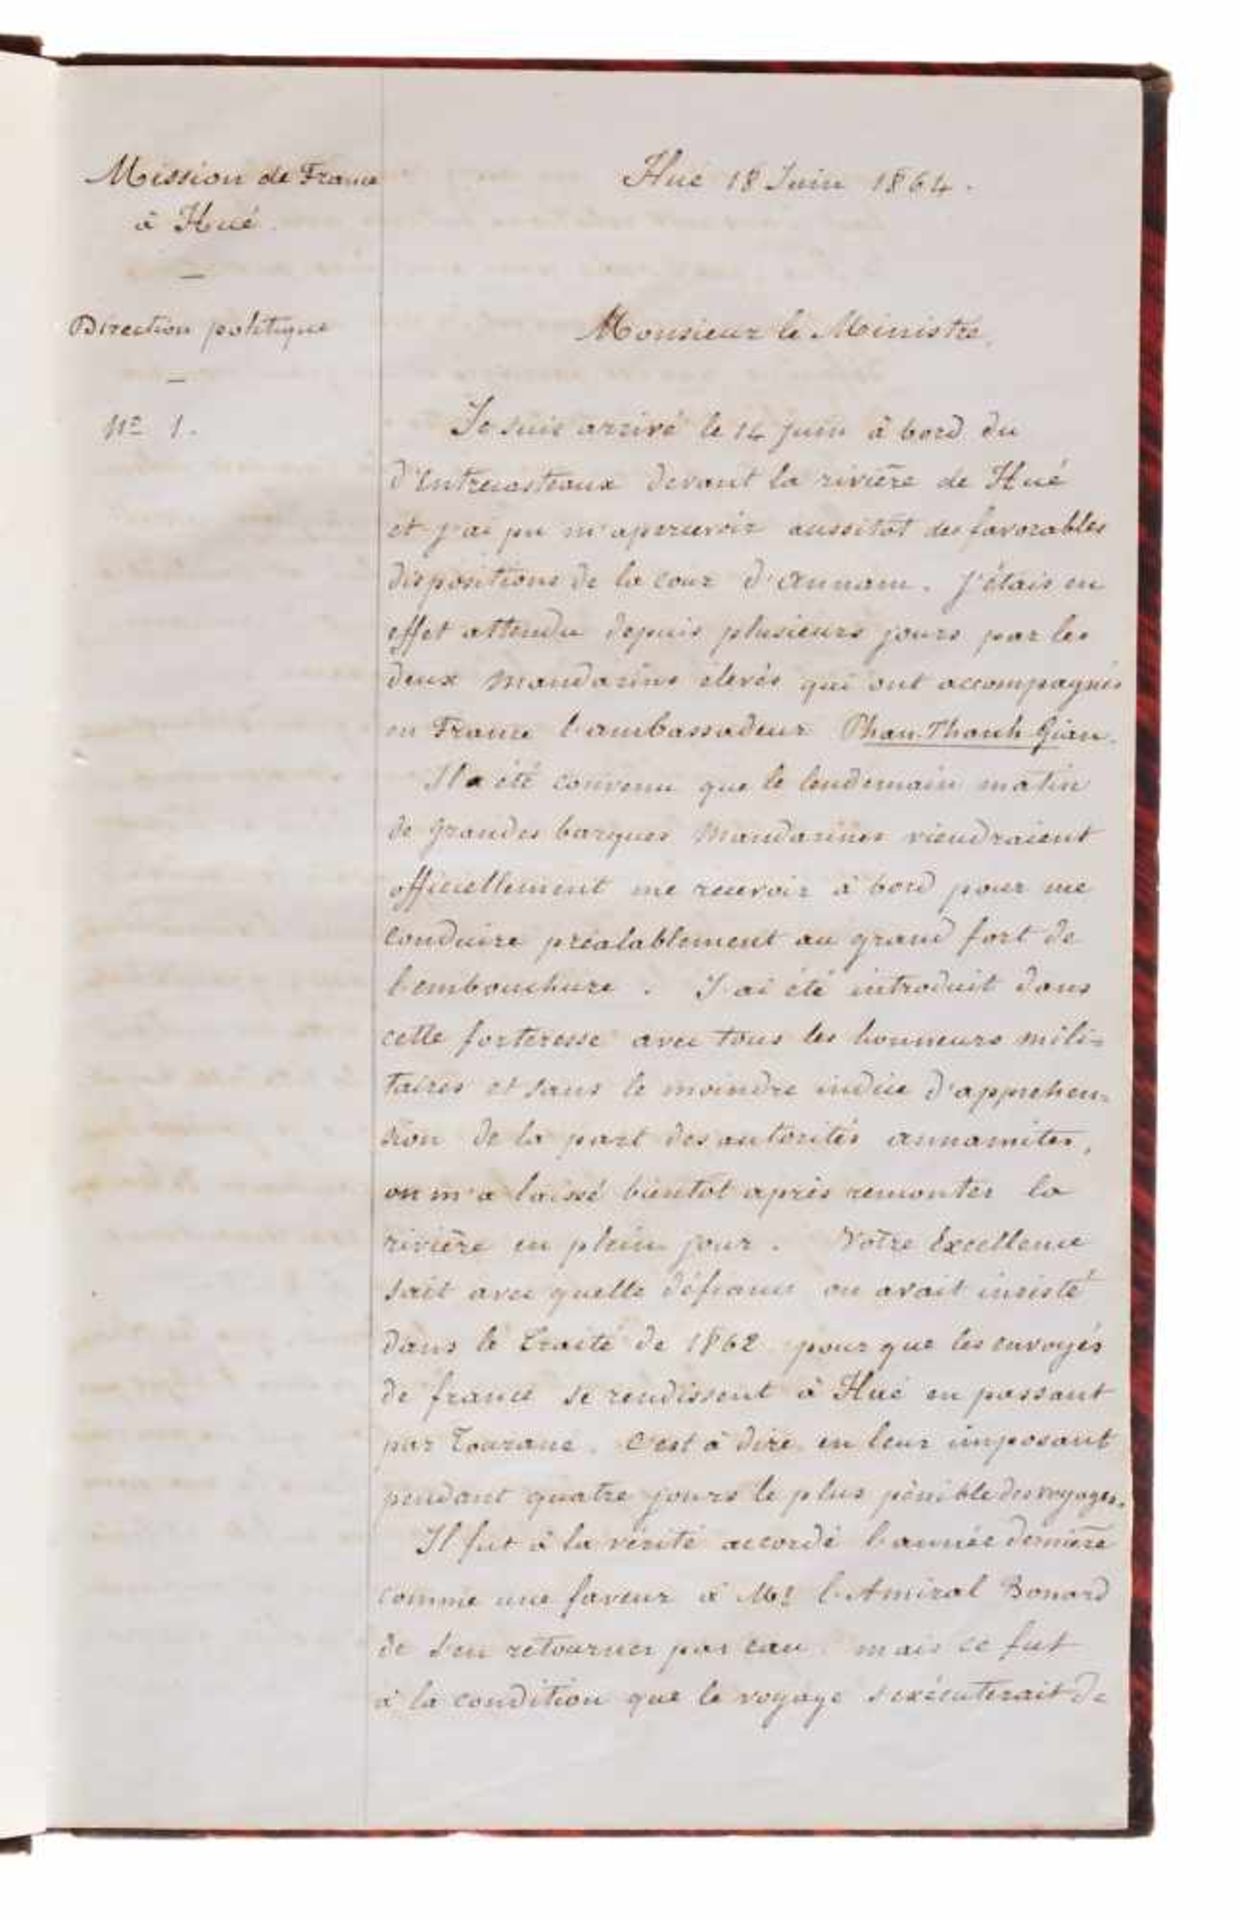 Mission de France
à Hué.
Hué 18 Juin 1864.
Direction politique
Nº 1.
Monsieur le Ministre,
Je suis arrivé le 14 juin à bord du
d'Entrecasteaux devant la rivière de Hué
et j'ai pu m'apercevoir aussitôt des favorables
dispositions de la cour d'Annam. J'étais en
effet attendu depuis plusieurs jours par les
deux Mandarins élevés qui ont accompagnés
en France l'ambassadeur Phan. Thanh Gian.
Il a été convenu que le lendemain matin
de grandes barques Mandarines viendraient
officiellement me recevoir à bord pour me
conduire préalablement au grand fort de
l'embouchure. J'ai été introduit dans
cette forteresse avec tous les honneurs mili=
taires et sans le moindre indice d'appréhen=
sion de la part des autorités annamites,
on m'a laissé bientôt après remonter la
rivière en plein jour. Votre Excellence
sait avec quelle défiance on avait insisté
dans le Traité de 1862 pour que les envoyés
de france se rendissent à Hué en passant
par Tourane. C'est à dire, en leur imposant
pendant quatre jours le plus pénible des voyages.
Il fut à la vérité accordé l'année dernière
comme une faveur à Mr l'Amiral Bonard
de s'en retourner par eau. mais ce fut
à la condition que le voyage s'exécuterait de